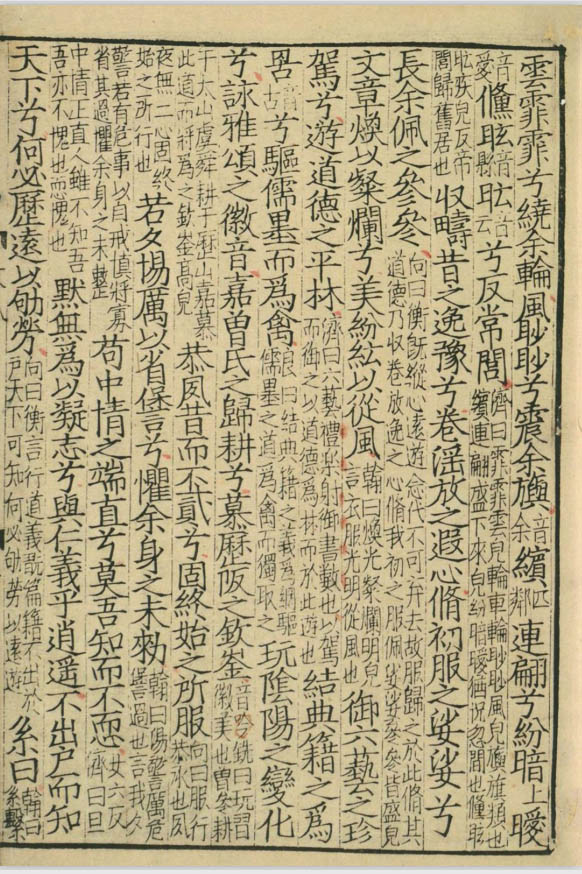 雲霏霏兮繞余輪風眇眇兮震余旟音余繽匹鄰連翩兮紛暗上曖
音愛儵眩音縣眃音云兮反常閭濟曰霏霏雲皃輪車輪眇眇風皃旟旌類也繽連翩盛下來皃紛暗曖俻怳忽閒也儵眩
眃疾皃反帝閭歸舊居也收疇昔之逸豫兮卷滛放之遐心脩初服之娑娑兮
長余佩之參參向曰衡旣縱心遠遊念代不可弃去故服歸之於此脩其道德乃收卷放逸之心脩我初之服佩娑娑參參皆盛皃
文章煥以粲爛兮美紛紜以從風翰曰煥光粲爛明皃言衣服光明從風也御六藝之珍
駕兮遊道德之平林濟曰六藝禮樂射御書數也以駕而御之以道德爲林而於此遊也結典籍之爲
罟音古兮驅儒墨而爲禽良曰結典籍之義爲網驅儒墨之道爲禽而獨取之玩隂陽之變化
兮詠雅頌之徽音嘉曾氏之歸耕兮慕歷阪之欽崟音吟銑曰玩習徽美也曾參耕
于太山虞舜耕于歷山嘉慕此道而將爲之欽崟高皃恭夙昔而不貳兮固終始之所服向曰服行恭承也夙
夜無二心固終始之所行也若夕惕厲以省諐兮懼余身之未勑翰曰惕驚厲危諐過也言我夕
警若有危事以自戒慎將寡省其過懼余身之未整苟中情之端直兮莫吾知而不恧女六反濟曰且
中情正直人雖不知吾吾亦不愧也恧愧也默無爲以凝志兮與仁義乎逍遥不出戶而知
天下兮何必歷遠以劬勞向曰衡言行道義翫篇籍不出於戶天下可知何必劬勞以遠遊系曰翰曰系繫